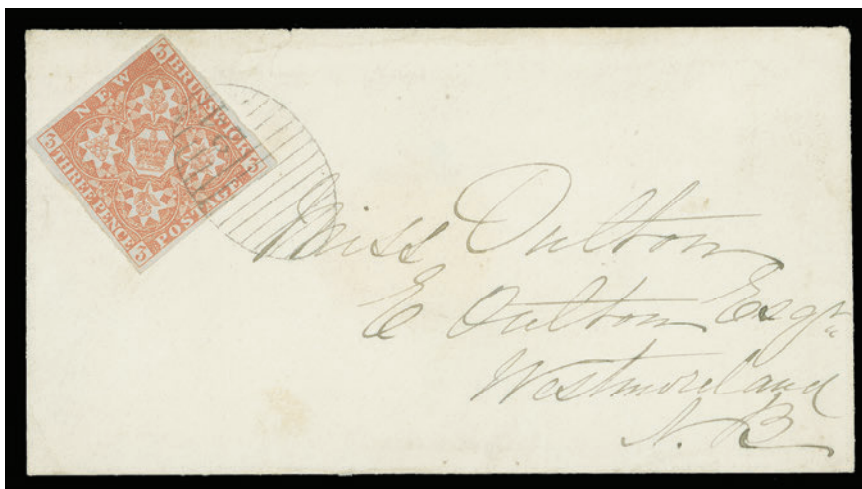 3 BRUNSWICK 3
NEW
THREE PENCE
POSTAGE
3 3
Miss Oulton
E Oulton Esqr
Westmoreland
N.B